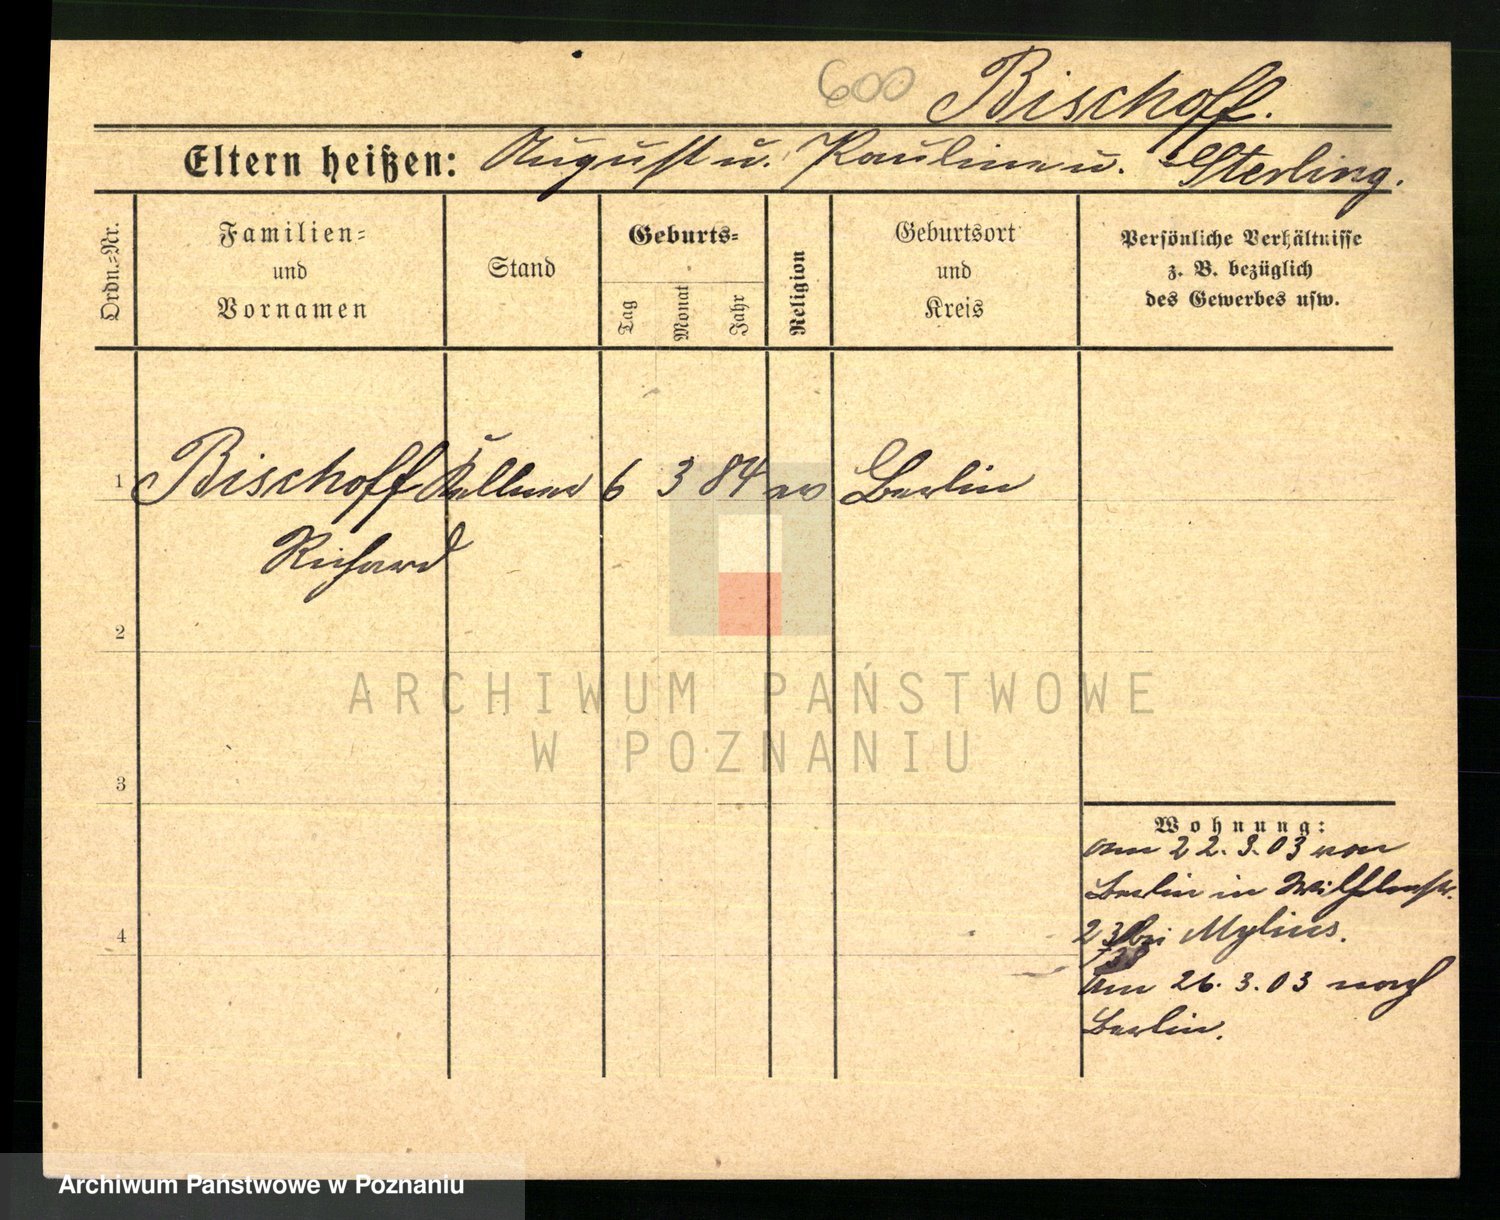 600 Bischoff.
Eltern heißen: August u. Pauline u. Sterling.
Ordn.-Nr.
Familien-
und
Vornamen
Stand
Geburts-
Tag
Monat
Jahr
Religion
Geburtsort
und
Kreis
Persönliche Verhältnisse
z. B. bezüglich
des Gewerbes usw.
1 Bischoff Kellner 6 3 84 ev Berlin
Richard
2
3
4
Wohnung:
am 22. 3. 03 von
Berlin in Wilhelmstr.
23 bei Mylius.
am 26. 3. 03 nach
Berlin.
ARCHIWUM PAŃSTWOWE
W POZNANIU
Archiwum Państwowe w Poznaniu